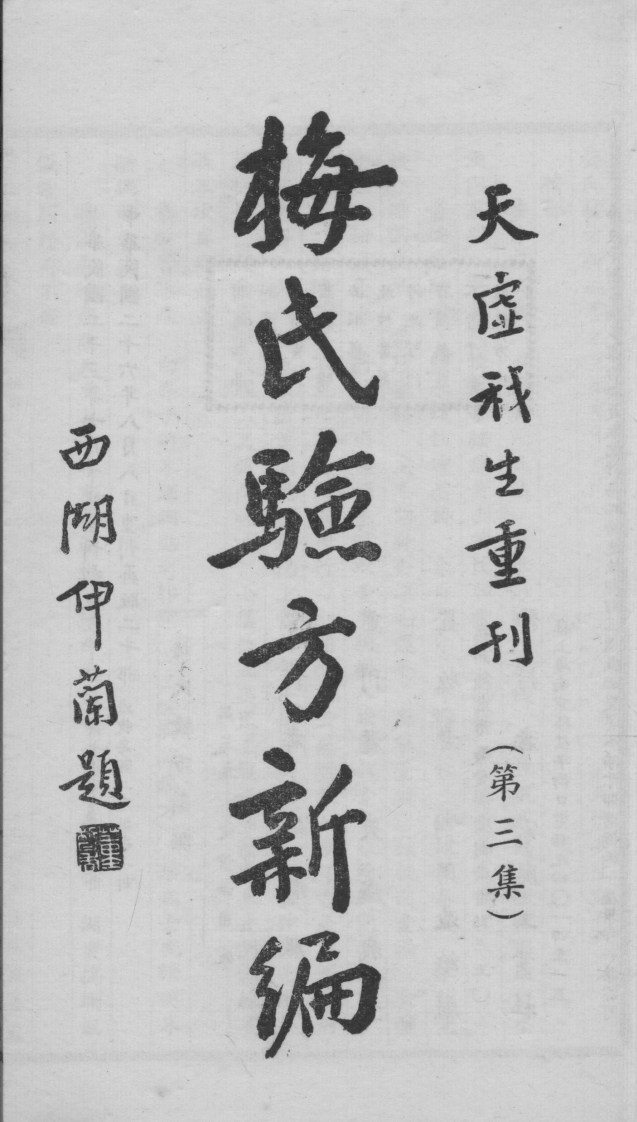 天虛我生重刊
(第三集)
梅氏驗方新編
西湖伊蘭題